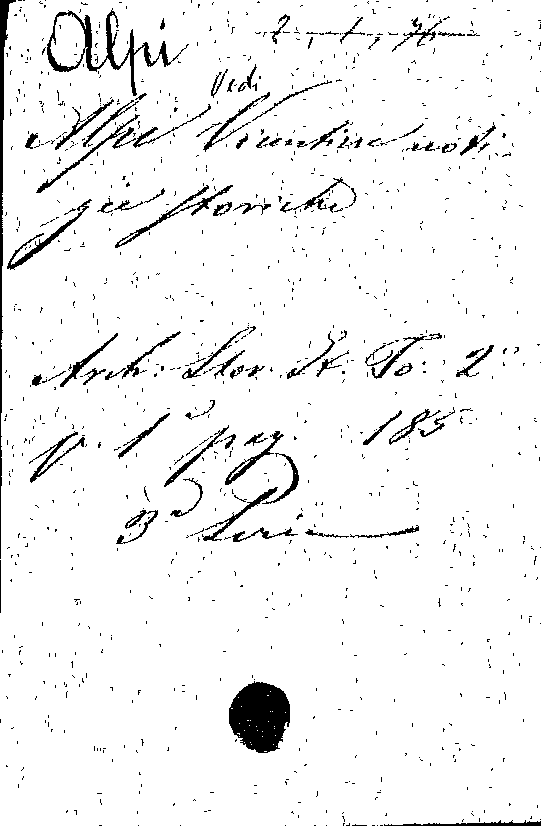 Alpi 2, 1, 76
Vedi
Alpi Vicentine noti
zie storiche
Arch: Stor. It. To: 2º
p. 1ª pag. 185
3ª Serie